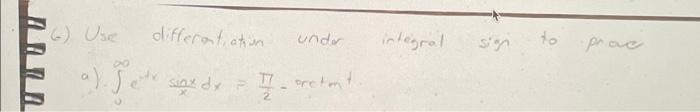 6) Use differentiation under integral sign to prove
a). ∫₀^∞ e^{-tx} sinx/x dx = π/2 - arctant.